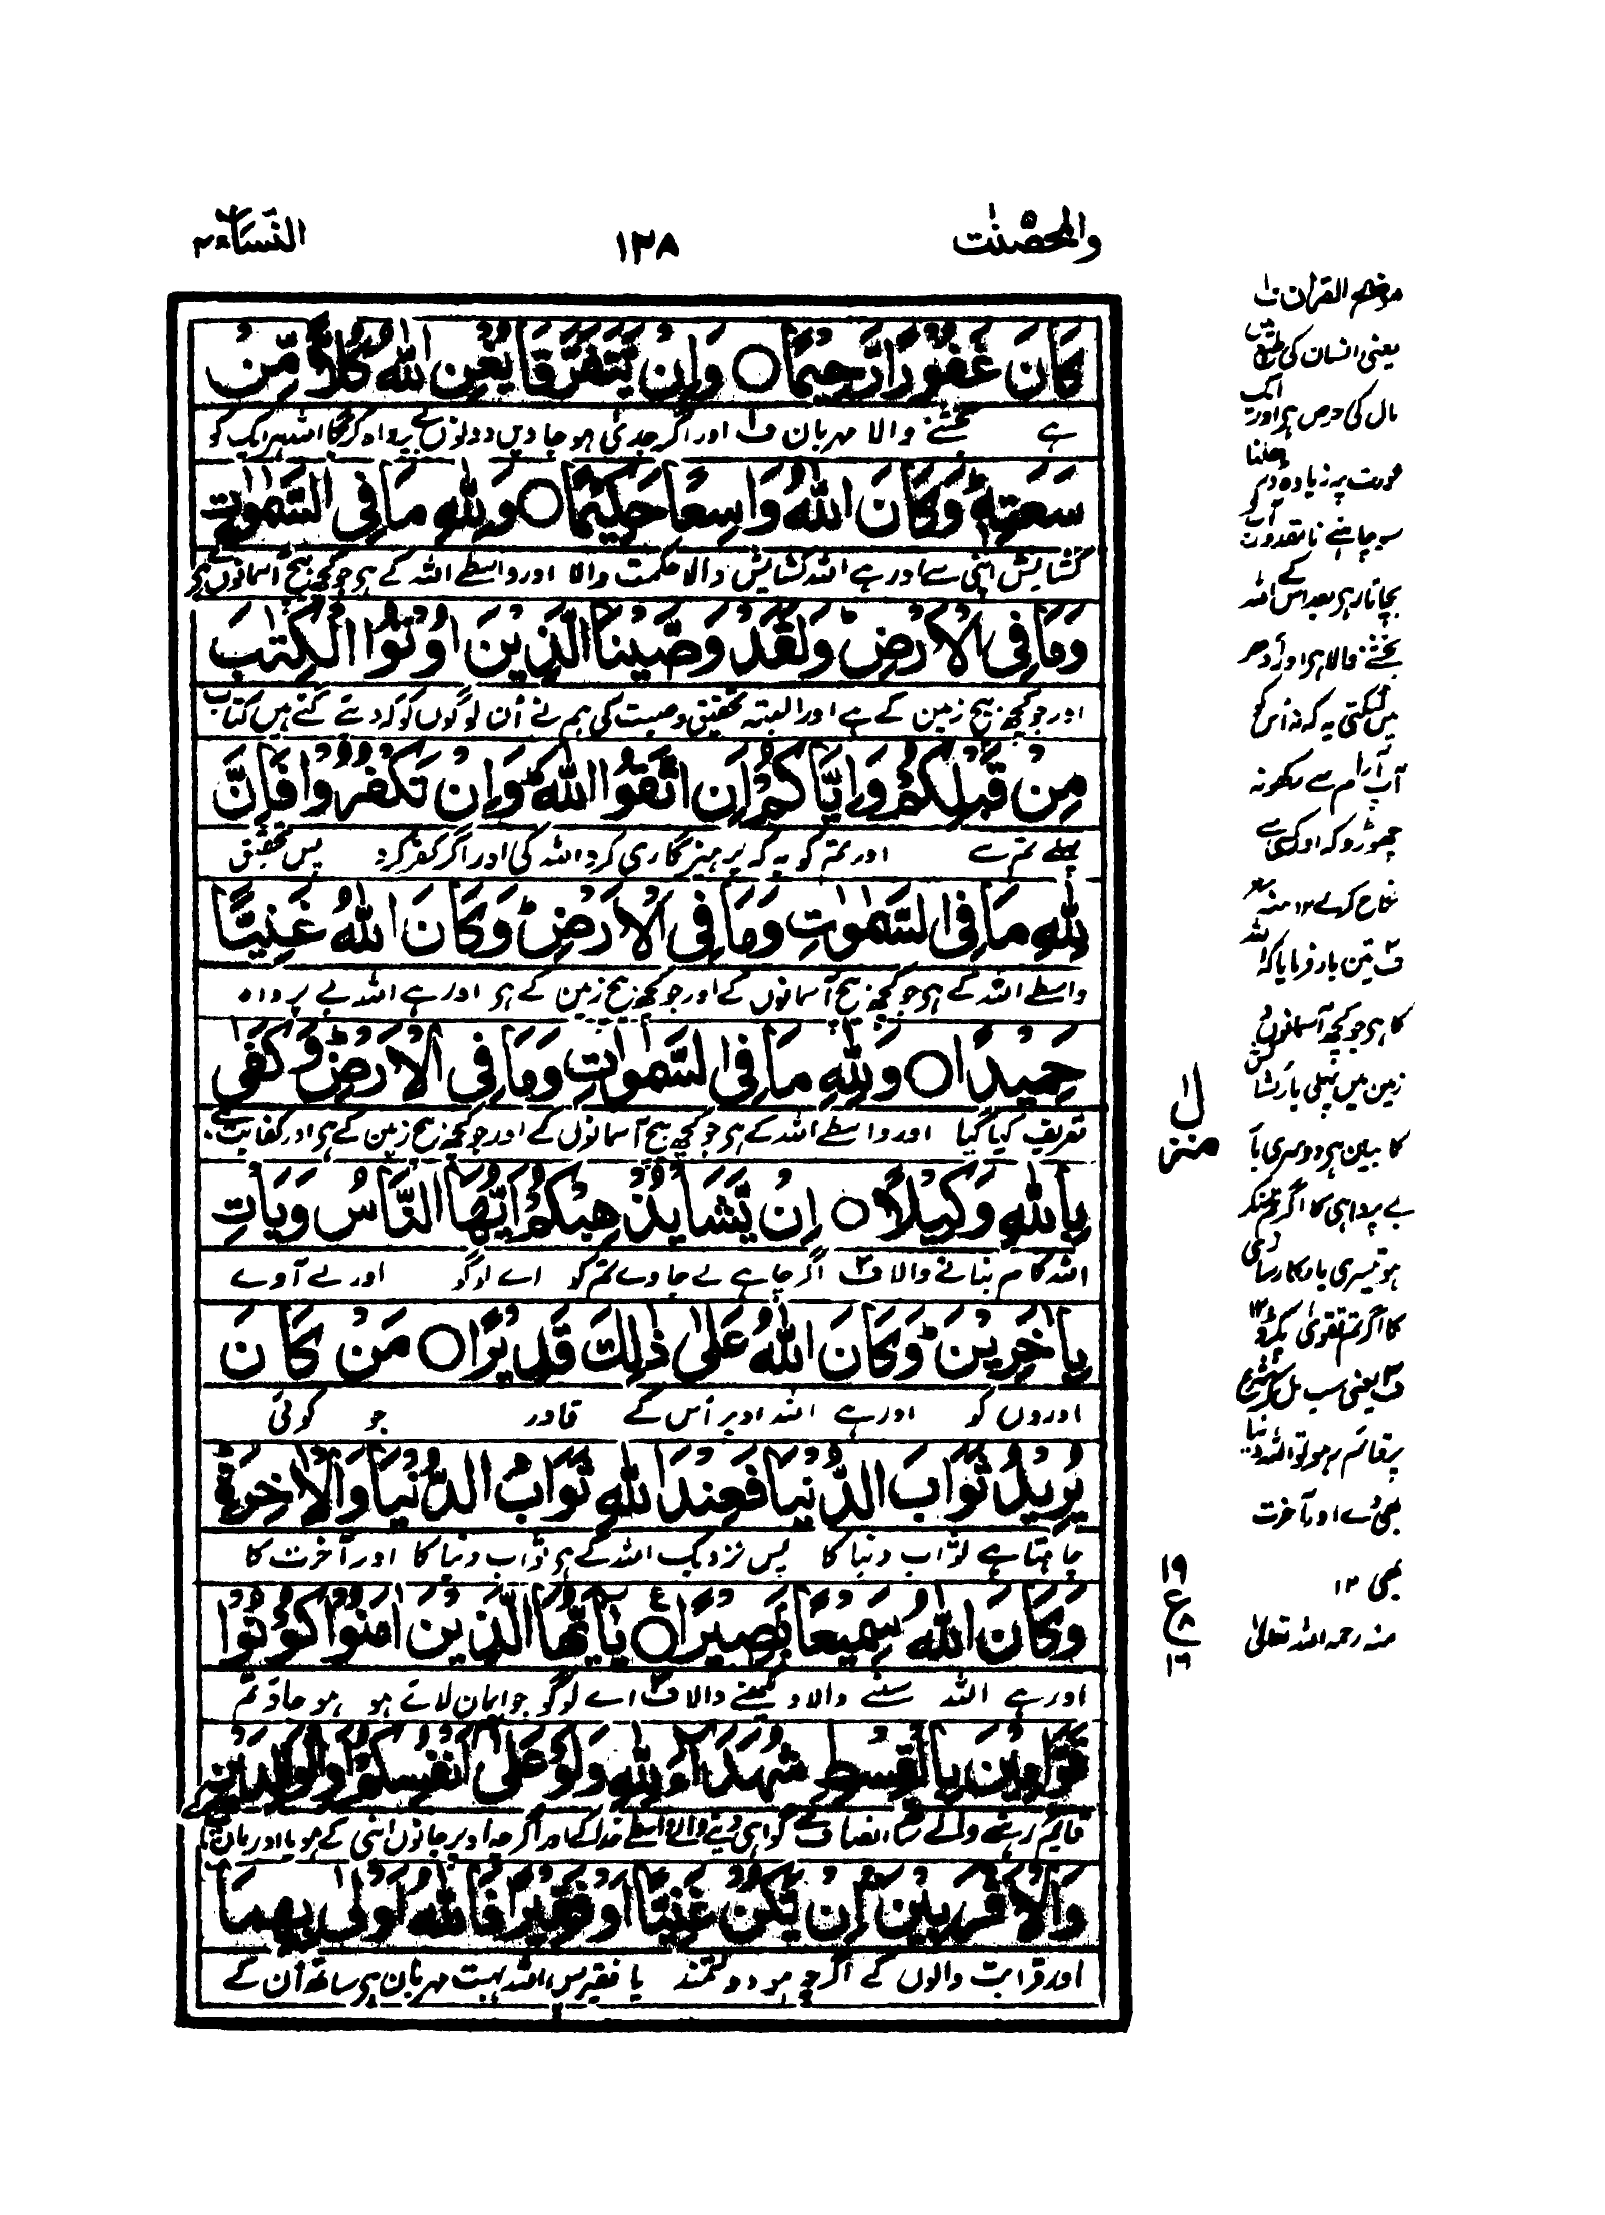 والمحصنٰت ١٣٨ النسآء ٤
كَانَ غَفُوْرًا رَّحِيْمًا ○ وَاِنْ يَّتَفَرَّقَا يُغْنِ اللّٰهُ كُلًّا مِّنْ
ہے بخشنے والا مہربان ف۱ اور اگر جدے ہو جاویں دونوں بے پرواہ کریگا اللہ ہر ایک کو
سَعَتِهٖ ؕ وَكَانَ اللّٰهُ وَاسِعًا حَكِيْمًا ○ وَلِلّٰهِ مَا فِى السَّمٰوٰتِ
کشایش اپنی سے اور ہے اللہ کشایش والا حکمت والا اور واسطے اللہ کے ہی جو کچھ بیچ آسمانوں کے ہی
وَمَا فِى الْاَرْضِ ؕ وَلَقَدْ وَصَّيْنَا الَّذِيْنَ اُوْتُوا الْكِتٰبَ
اور جو کچھ بیچ زمین کے ہے اور البتہ تحقیق وصیت کی ہم نے اُن لوگوں کو کہ دیئے گئے ہیں کتاب
مِنْ قَبْلِكُمْ وَاِيَّاكُمْ اَنِ اتَّقُوا اللّٰهَ ؕ وَاِنْ تَكْفُرُوْا فَاِنَّ
پہلے تم سے اور تم کو یہ کہ پرہیزگاری کرو اللہ کی اور اگر کفر کرو پس تحقیق
لِلّٰهِ مَا فِى السَّمٰوٰتِ وَمَا فِى الْاَرْضِ ؕ وَكَانَ اللّٰهُ غَنِيًّا
واسطے اللہ کے ہی جو کچھ بیچ آسمانوں کے اور جو کچھ بیچ زمین کے ہی اور ہے اللہ بے پرواہ
حَمِيْدًا ○ وَلِلّٰهِ مَا فِى السَّمٰوٰتِ وَمَا فِى الْاَرْضِ ؕ وَكَفٰى
تعریف کیا گیا اور واسطے اللہ کے ہی جو کچھ بیچ آسمانوں کے اور جو کچھ بیچ زمین کے ہی اور کفایت ہے
بِاللّٰهِ وَكِيْلًا ○ اِنْ يَّشَاْ يُذْهِبْكُمْ اَيُّهَا النَّاسُ وَيَاْتِ
اللہ کام بنانے والا ف۲ اگر چاہے لے جاوے تم کو اے لوگو اور لے آوے
بِاٰخَرِيْنَ ؕ وَكَانَ اللّٰهُ عَلٰى ذٰلِكَ قَدِيْرًا ○ مَنْ كَانَ
اوروں کو اور ہے اللہ اوپر اُس کے قادر جو کوئی
يُرِيْدُ ثَوَابَ الدُّنْيَا فَعِنْدَ اللّٰهِ ثَوَابُ الدُّنْيَا وَالْاٰخِرَةِ ؕ
چاہتا ہے ثواب دنیا کا پس نزدیک اللہ کے ہی ثواب دنیا کا اور آخرت کا
وَكَانَ اللّٰهُ سَمِيْعًا بَصِيْرًا ○ يٰٓاَيُّهَا الَّذِيْنَ اٰمَنُوْا كُوْنُوْا
اور ہے اللہ سننے والا دیکھنے والا ف۳ اے لوگو جو ایمان لائے ہو ہو جاؤ تم
قَوّٰمِيْنَ بِالْقِسْطِ شُهَدَآءَ لِلّٰهِ وَلَوْ عَلٰٓى اَنْفُسِكُمْ اَوِ الْوَالِدَيْنِ
قایم رہنے والے ساتھ انصاف کے گواہی دینے والے واسطے خدا کے اور اگرچہ اوپر جانوں اپنی کے ہو یا اوپر ماں باپ
وَالْاَقْرَبِيْنَ ؕ اِنْ يَّكُنْ غَنِيًّا اَوْ فَقِيْرًا فَاللّٰهُ اَوْلٰى بِهِمَا
اور قرابت والوں کے اگر ہو وہ دولتمند یا فقیر پس اللہ بہت مہربان ہی ساتھ اُن کے
موضح القرآن ف۱
یعنی انسان کی طبع میں
مال کی حرص ہی اور ایک
عورت پر زیادہ
سو چاہئے تا مقدور آپ کو
بچاتا رہی بعد اس کے اللہ
بخشنے والا ہی اور اُدھر
میں لٹکتی یہ کہ نہ اُس کو
آپ آرام سے رکھو نہ
چھوڑو کہ اور کسی سے
نکاح کرلے ۱۲ منہ
ف۲ تین بار فرمایا کہ اللہ
کا ہی جو کچھ آسمانوں
زمین میں پہلی بار کشایش
کا بیان ہی دوسری بار
بے پرواہی کا اگر تم منکر
ہو تیسری بار کارسازی
کا اگر تم تقوٰی پکڑو ۱۲
ف۳ یعنی سب مل کر شرع
پر قائم رہو تو اللہ دنیا
بھی دے اور آخرت
بھی ۱۲
منہ رحمہ اللہ تعالیٰ
منزل ۱
١٩
ع
٨
١٦